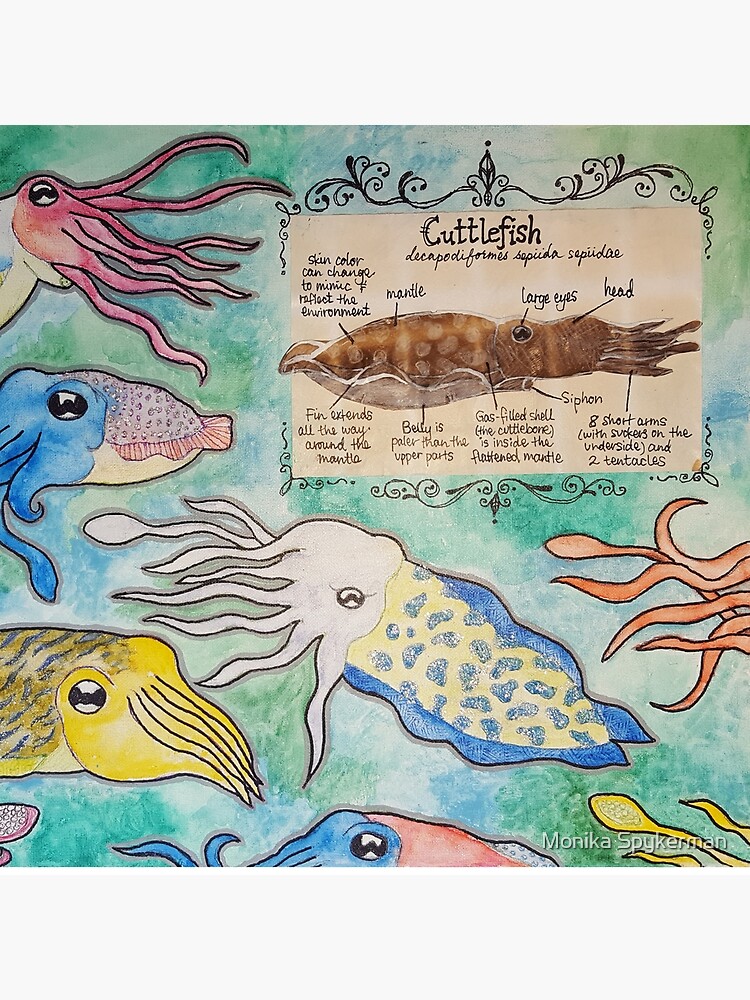 Cuttlefish
decapodiformes sepiida sepiidae
skin color
can change
to mimic &
reflect the
environment
mantle
large eyes
head
Siphon
Fin extends
all the way
around the
mantle
Belly is
paler than the
upper parts
Gas-filled shell
(the cuttlebone)
is inside the
flattened mantle
8 short arms
(with suckers on the
underside) and
2 tentacles
Monika Spykerman